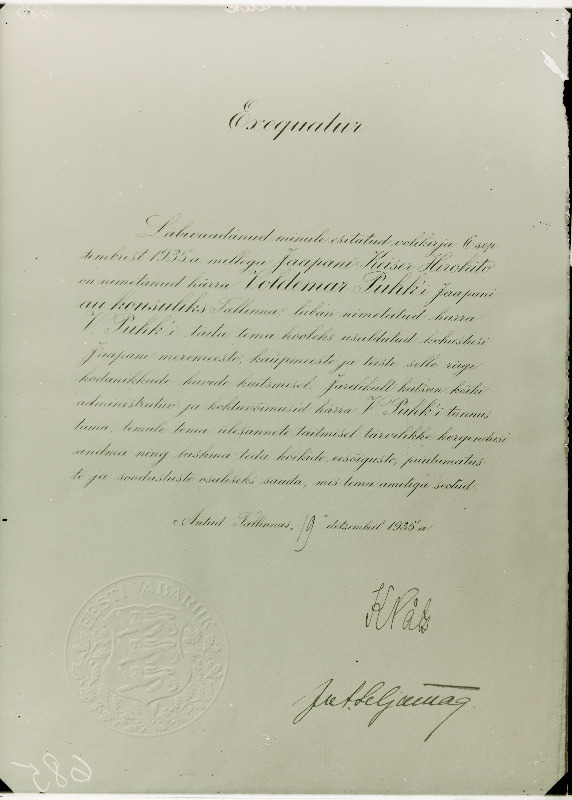 Exequatur
Läbivaadanud minule esitatud volikirja 6 sep
tembrist 1935.a. millega Jaapani Keiser Hirohito
on nimetanud härra Voldemar Puhk'i Jaapani
au konsuliks Tallinna, luban nimetatud härra
V. Puhk'i täita tema hooleks usaldatud kohustusi
Jaapani meremeeste, kaupmeeste ja teiste selle riigi
kodanikkude huvide kaitsmisel. Järelikult kutsun kõiki
administratiiv ja kohtuvõimusid härra V. Puhk'i tunnus
tama, temale tema ülesannete täitmisel tarvilikke kergendusi
andma ning laskma teda kõikide eesõiguste, puutumatus-
te ja soodustuste osaliseks saada, mis tema ametiga seotud.
Antud Tallinnas, "19" detsembril 1935 a.
K Päts
EESTI VABARIIK
JulSeljamaa
685